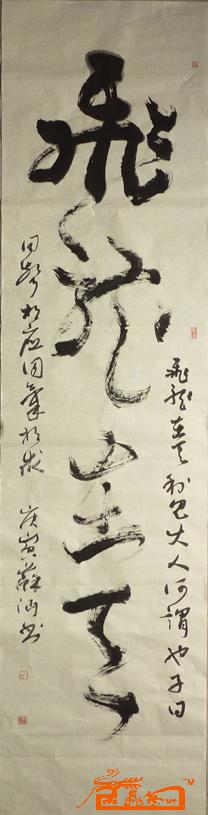 飛龍在天
飛龍在天利見大人何謂也子曰
同聲相應同氣相求 庚寅蘇洪書
™